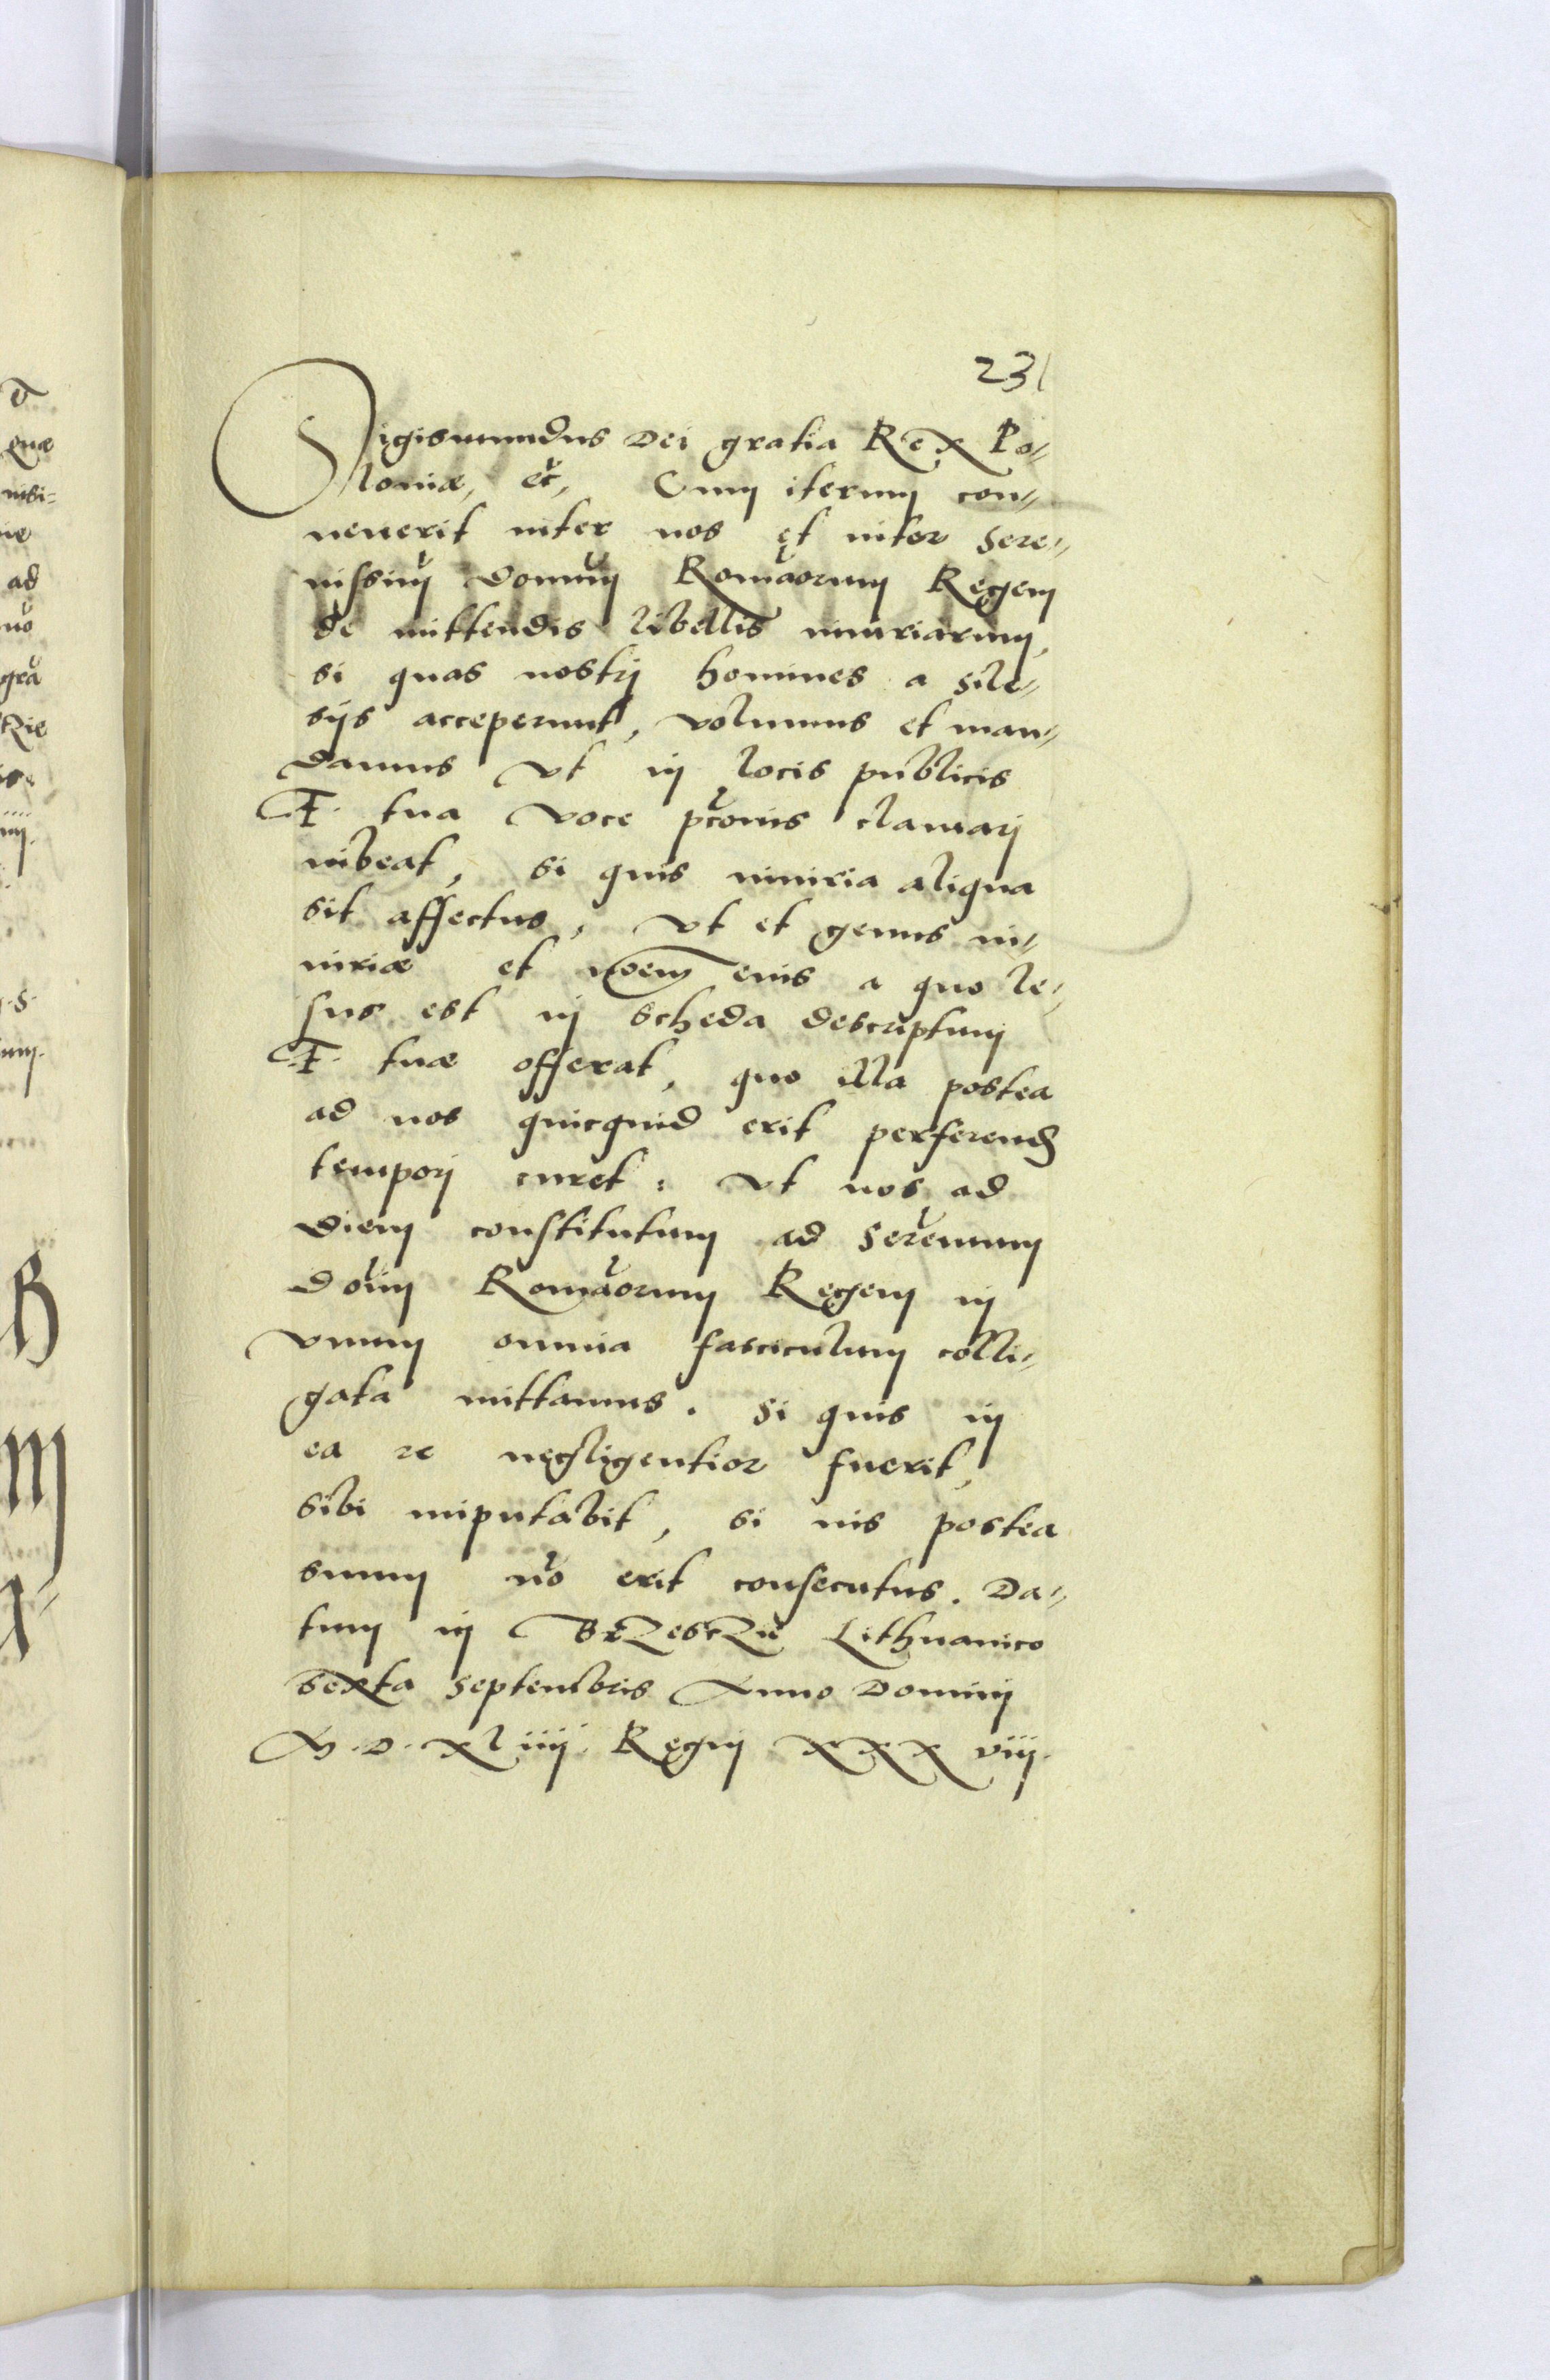 231
Sigismundus Dei gratia Rex Po-
loniæ, etc, Cum iterum con-
uenerit inter nos et inter Sere-
nissimũ Dominũ Romãorum Regem
de mittendis libellis iniuriarum,
si quas nostrj homines a Sile-
sijs acceperunt, volumus et man-
damus vt in locis publicis
F. tua voce pcõnis clamarj
iubeat, si quis iniuria aliqua
sit affectus, vt et genus in-
iuriæ et noem eius a quo le-
sus est in scheda descriptum
F. tuæ offerat, quo illa postea
ad nos quicquid erit perferend
temporj curet: vt nos ad
diem constitutum ad Serẽnnum
Doũm Romãorum Regem in
vnum omnia fasciculum colli-
gata mittamus. Si quis in
ea re negligentior fuerit,
sibi imputabit, si ius postea
suum nõ erit consecutus. Da-
tum in BrzesczIe Lithuanico
sexta Septembris Anno Dominj
M.D.XLiiij. Regnj XXX viij.